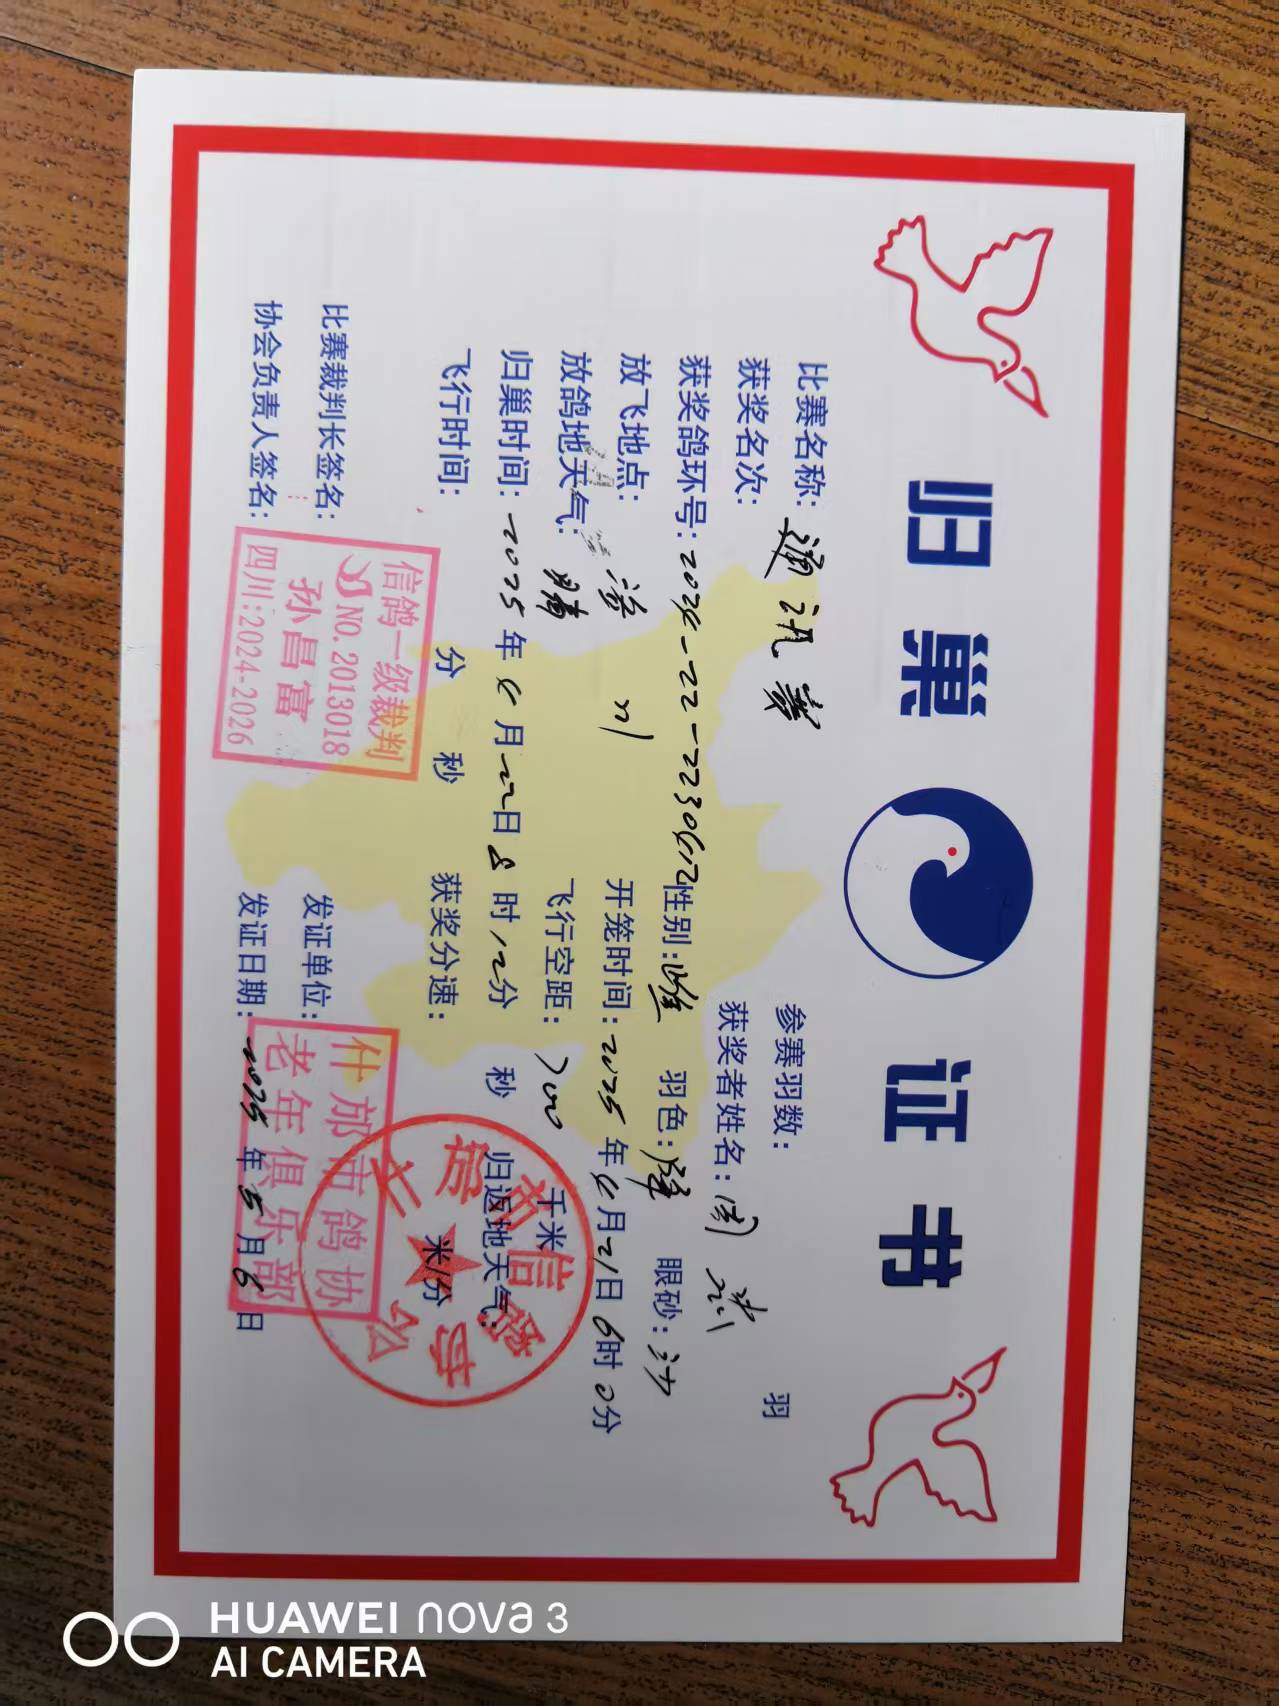 归巢证书
比赛名称:通讯赛 参赛羽数: 羽
获奖名次: 获奖者姓名:周
获奖鸽环号:2024-22-2230642 性别:雌 羽色: 眼砂:沙
放飞地点: 川 开笼时间:2025年4月21日6时0分
放鸽地天气:晴 飞行空距:700 千米
归巢时间:2025年4月22日8时12分 秒 归返地天气:
飞行时间: 分 秒 获奖分速: 米/分
比赛裁判长签名: 发证单位:
协会负责人签名: 发证日期:2025年5月6日
信鸽一级裁判
NO.2013018
孙昌富
四川:2024-2026
什邡市鸽协
老年俱乐部
什邡市信鸽协会
HUAWEI nova 3
AI CAMERA